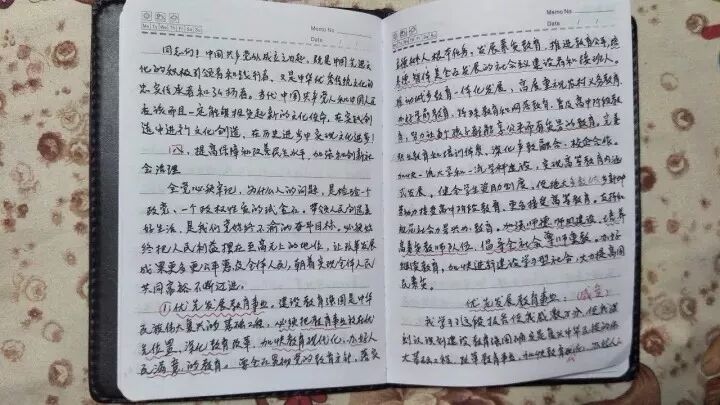 Memo No.
Mo Tu We Th Fr Sa Su
Date / /
同志们！中国共产党从成立之日起，既是中国先进文
化的积极引领者和践行者，又是中华优秀传统文化的
忠实传承者和弘扬者。当代中国共产党人和中国人民
应该而且一定能够担负起新的文化使命，在实践创
造中进行文化创造，在历史进步中实现文化进步！
八、提高保障和改善民生水平，加强和创新社
会治理
全党必须牢记，为什么人的问题，是检验一个
政党、一个政权性质的试金石。带领人民创造美
好生活，是我们党始终不渝的奋斗目标。必须始
终把人民利益摆在至高无上的地位，让改革发展
成果更多更公平惠及全体人民，朝着实现全体人民
共同富裕不断迈进。
①优先发展教育事业。建设教育强国是中华
民族伟大复兴的基础工程，必须把教育事业放在优
先位置，深化教育改革，加快教育现代化，办好人
民满意的教育。要全面贯彻党的教育方针，落实
Memo No.
Mo Tu We Th Fr Sa Su
Date / /
立德树人根本任务，发展素质教育，推进教育公平，培
养德智体美全面发展的社会主义建设者和接班人。
推动城乡教育一体化发展，高度重视农村义务教育，
办好学前教育、特殊教育和网络教育，普及高中阶段教
育，努力让每个孩子都能享有公平而有质量的教育。完善
职业教育和培训体系，深化产教融合、校企合作。
加快一流大学和一流学科建设，实现高等教育内涵
式发展。健全学生资助制度，使绝大多数城乡新增
劳动力接受高中阶段教育、更多接受高等教育。支持和
规范社会力量兴办教育。加强师德师风建设，培养
高素质教师队伍，倡导全社会尊师重教。办好
继续教育，加快建设学习型社会，大力提高国
民素质。
优先发展教育事业：（感言）
我学习了这段报告使我感触万分，使我深
刻认识到建设教育强国确实是复兴中华民族的伟
大基础工程，改革教育事业，加快教育